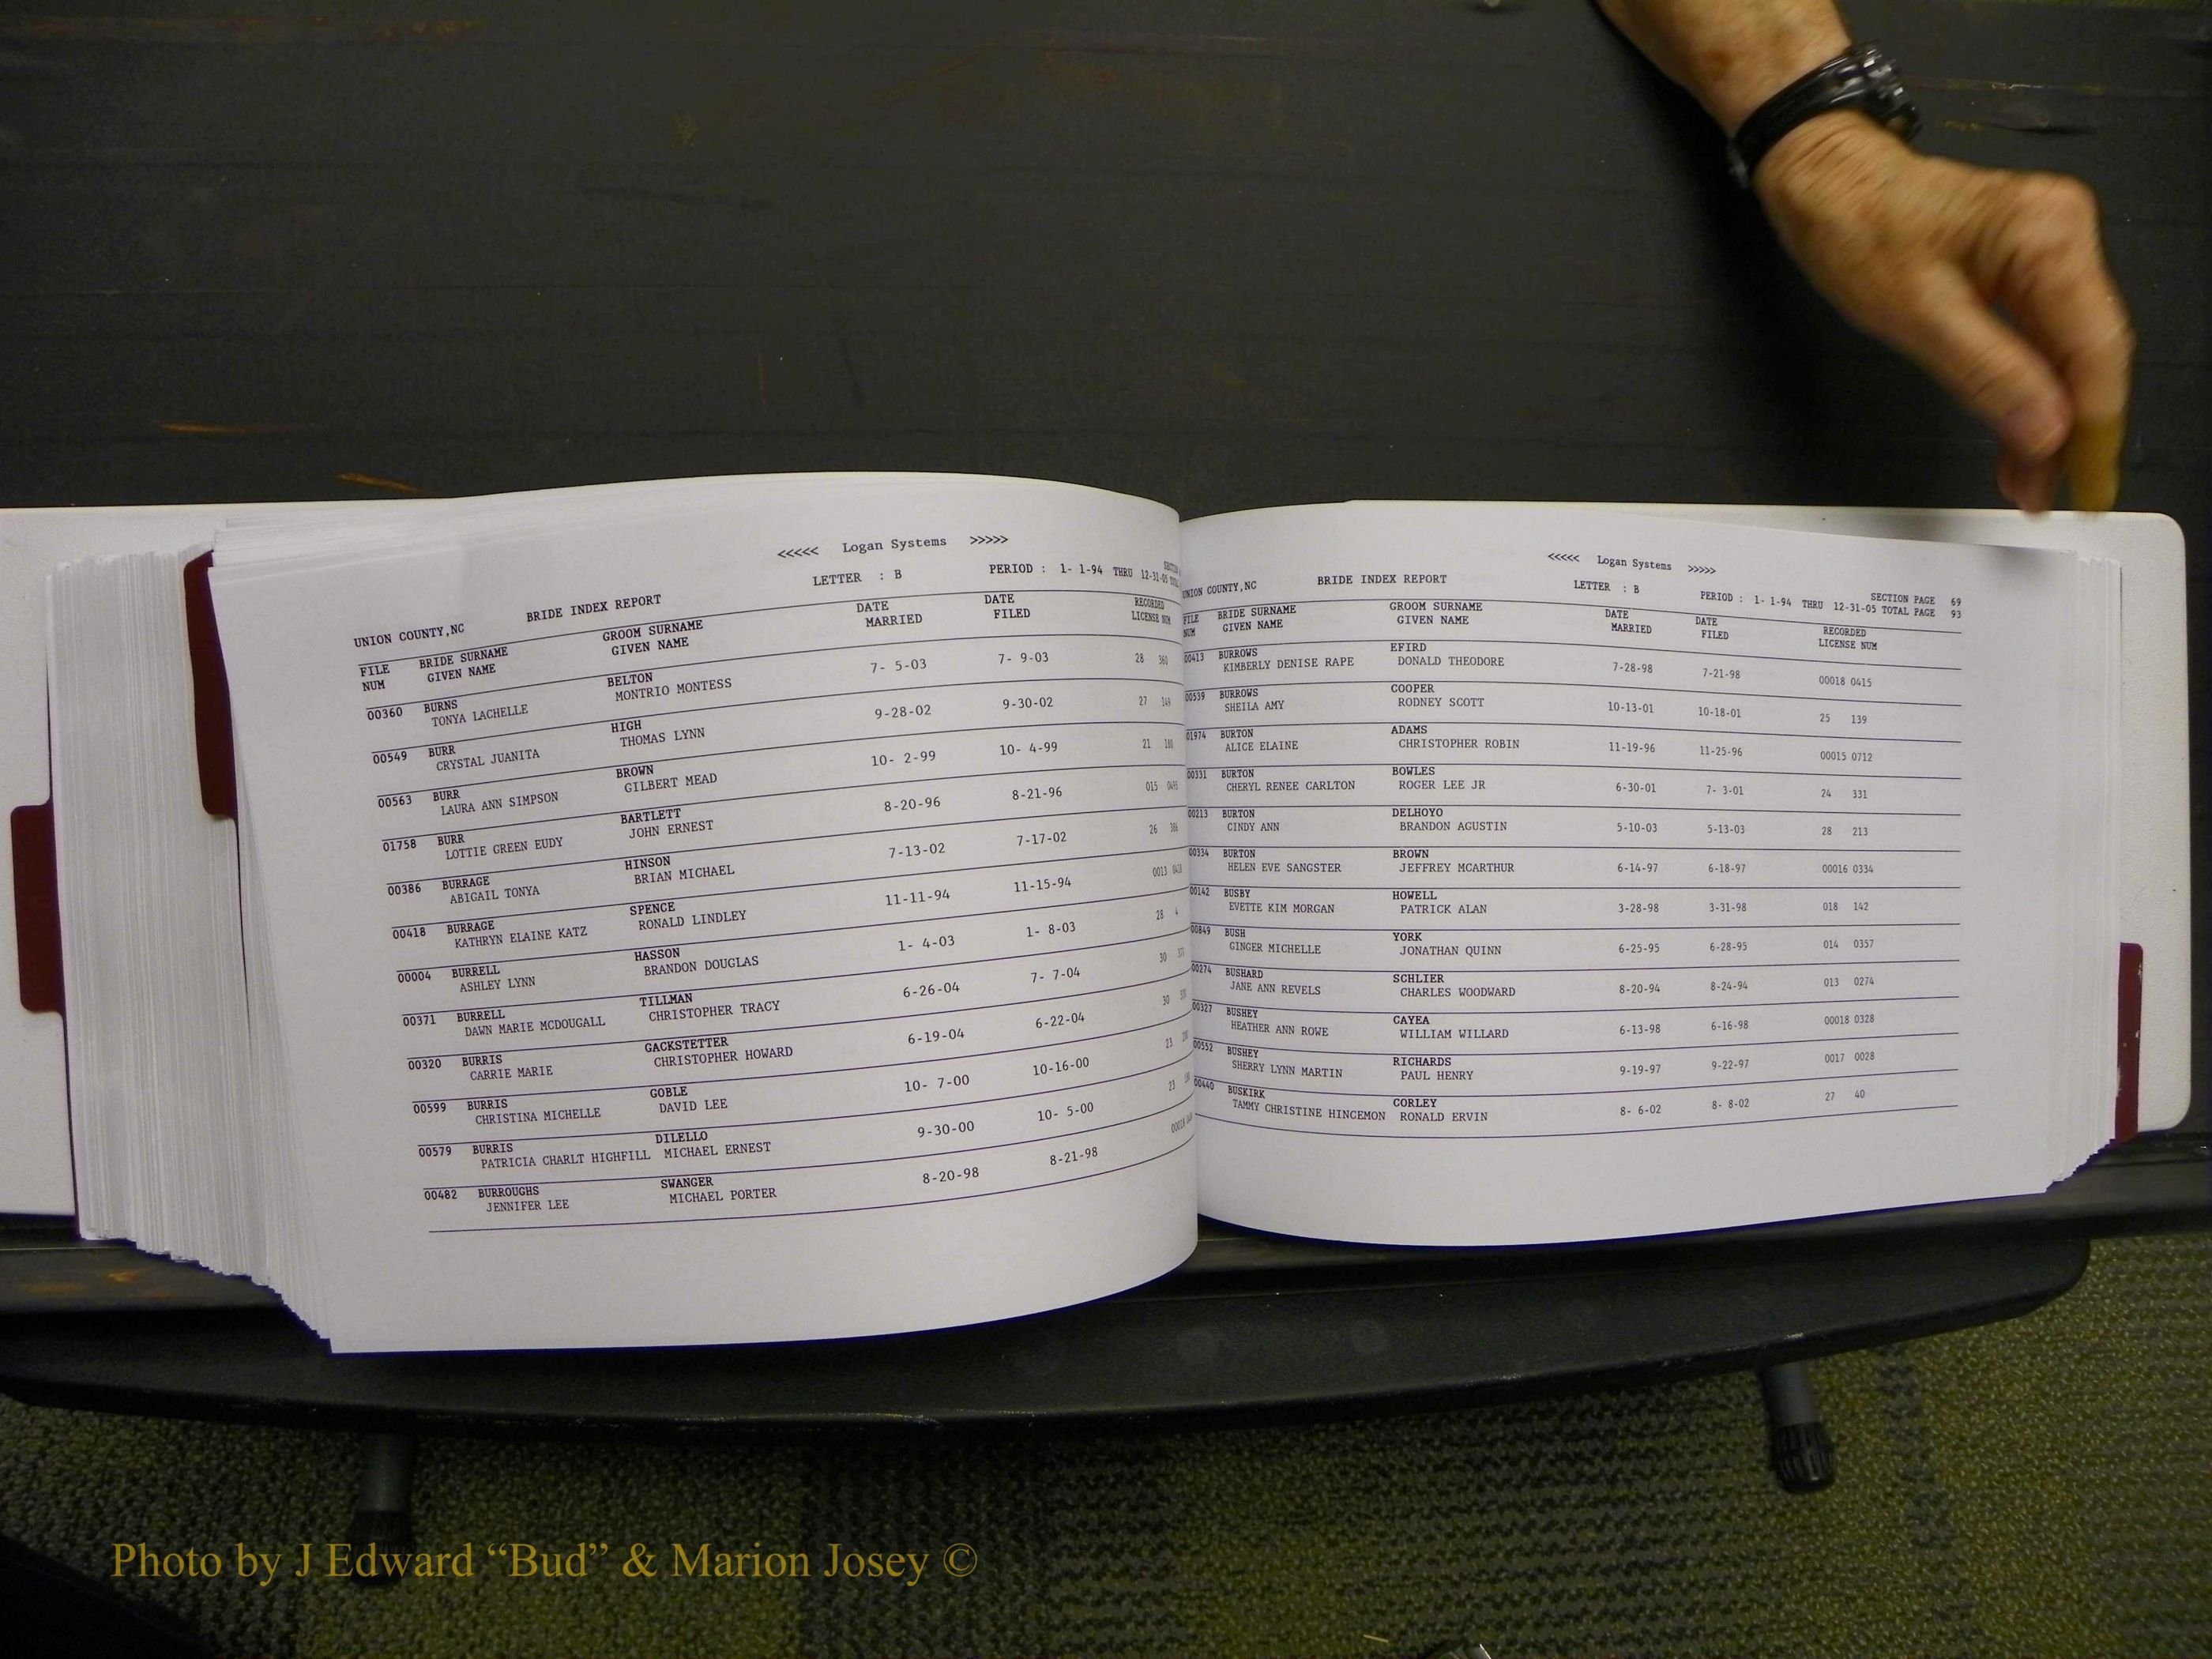 <<<<< Logan Systems >>>>>
LETTER : B PERIOD : 1- 1-94 THRU 12-31-05
UNION COUNTY,NC BRIDE INDEX REPORT
FILE BRIDE SURNAME GROOM SURNAME DATE DATE RECORDED
NUM GIVEN NAME GIVEN NAME MARRIED FILED LICENSE NUM
00360 BURNS BELTON 7- 5-03 7- 9-03 28 360
TONYA LACHELLE MONTRIO MONTESS
00549 BURR HIGH 9-28-02 9-30-02 27
CRYSTAL JUANITA THOMAS LYNN
00563 BURR BROWN 10- 2-99 10- 4-99 21
LAURA ANN SIMPSON GILBERT MEAD
01758 BURR BARTLETT 8-20-96 8-21-96 015
LOTTIE GREEN EUDY JOHN ERNEST
00386 BURRAGE HINSON 7-13-02 7-17-02 26
ABIGAIL TONYA BRIAN MICHAEL
00418 BURRAGE SPENCE 11-11-94 11-15-94 0013
KATHRYN ELAINE KATZ RONALD LINDLEY
00004 BURRELL HASSON 1- 4-03 1- 8-03 28 4
ASHLEY LYNN BRANDON DOUGLAS
00371 BURRELL TILLMAN 6-26-04 7- 7-04 30
DAWN MARIE MCDOUGALL CHRISTOPHER TRACY
00320 BURRIS GACKSTETTER 6-19-04 6-22-04 30
CARRIE MARIE CHRISTOPHER HOWARD
00599 BURRIS GOBLE 10- 7-00 10-16-00 23
CHRISTINA MICHELLE DAVID LEE
00579 BURRIS DILELLO 9-30-00 10- 5-00 23
PATRICIA CHARLT HIGHFILL MICHAEL ERNEST
00482 BURROUGHS SWANGER 8-20-98 8-21-98
JENNIFER LEE MICHAEL PORTER
<<<<< Logan Systems >>>>>
UNION COUNTY,NC BRIDE INDEX REPORT LETTER : B SECTION PAGE 69
PERIOD : 1- 1-94 THRU 12-31-05 TOTAL PAGE 93
FILE BRIDE SURNAME GROOM SURNAME DATE DATE RECORDED
NUM GIVEN NAME GIVEN NAME MARRIED FILED LICENSE NUM
00413 BURROWS EFIRD 7-28-98 7-21-98 00018 0415
KIMBERLY DENISE RAPE DONALD THEODORE
00539 BURROWS COOPER 10-13-01 10-18-01 25 139
SHEILA AMY RODNEY SCOTT
01974 BURTON ADAMS 11-19-96 11-25-96 00015 0712
ALICE ELAINE CHRISTOPHER ROBIN
00331 BURTON BOWLES 6-30-01 7- 3-01 24 331
CHERYL RENEE CARLTON ROGER LEE JR
00213 BURTON DELHOYO 5-10-03 5-13-03 28 213
CINDY ANN BRANDON AGUSTIN
00334 BURTON BROWN 6-14-97 6-18-97 00016 0334
HELEN EVE SANGSTER JEFFREY MCARTHUR
00142 BUSBY HOWELL 3-28-98 3-31-98 018 142
EVETTE KIM MORGAN PATRICK ALAN
00849 BUSH YORK 6-25-95 6-28-95 014 0357
GINGER MICHELLE JONATHAN QUINN
00274 BUSHARD SCHLIER 8-20-94 8-24-94 013 0274
JANE ANN REVELS CHARLES WOODWARD
00327 BUSHEY CAYEA 6-13-98 6-16-98 00018 0328
HEATHER ANN ROWE WILLIAM WILLARD
00552 BUSHEY RICHARDS 9-19-97 9-22-97 0017 0028
SHERRY LYNN MARTIN PAUL HENRY
00440 BUSKIRK CORLEY 8- 6-02 8- 8-02 27 40
TAMMY CHRISTINE HINCEMON RONALD ERVIN
Photo by J Edward “Bud” & Marion Josey ©